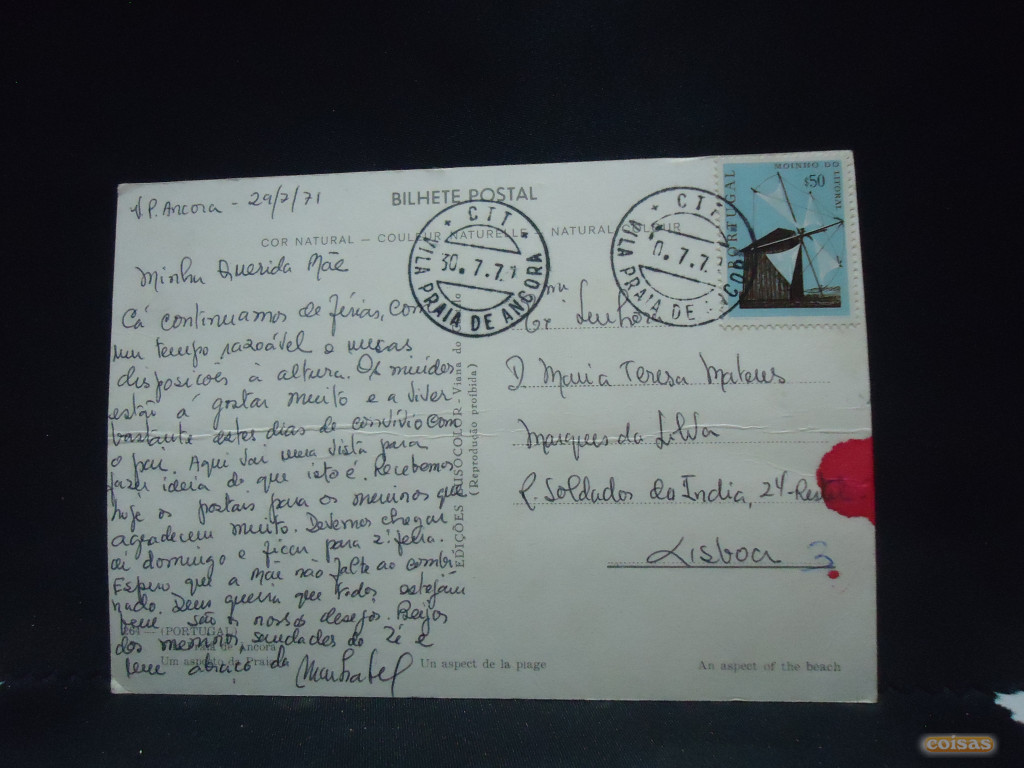 V.P. Ancora - 29/7/71
BILHETE POSTAL
COR NATURAL — COULEUR NATURELLE — NATURAL COLOUR
Minha Querida Mãe
Cá continuamos de férias, com
um tempo razoável e
disposições à altura. Os miúdos
estão a gostar muito e a viver
bastante estes dias de convívio com
o pai. Aqui vai uma vista para
fazer ideia do que isto é. Recebemos
hoje os postais para os meninos que
agradecem muito. Devemos chegar
aí domingo e ficar para 2ª feira.
Espero que a Mãe não falte ao combi-
nado. Deus queira que todos estejam
bem são os nossos desejos. Beijos
dos meninos, saudades do Zé e
um abraço da
CTT
30.7.71
VILA PRAIA DE ANCORA
CTT
0.7.7
VILA PRAIA DE ANCORA
MOINHO DO LITORAL
$50
PORTUGAL
Senhora
D. Maria Teresa Mateus
Marques da Silva
R. Soldados da India, 24-Restelo
Lisboa 3
EDIÇÕES - Viana do
(Reprodução proibida)
(PORTUGAL)
Praia de Âncora
Um aspecto da Praia
Un aspect de la plage
An aspect of the beach
coisas